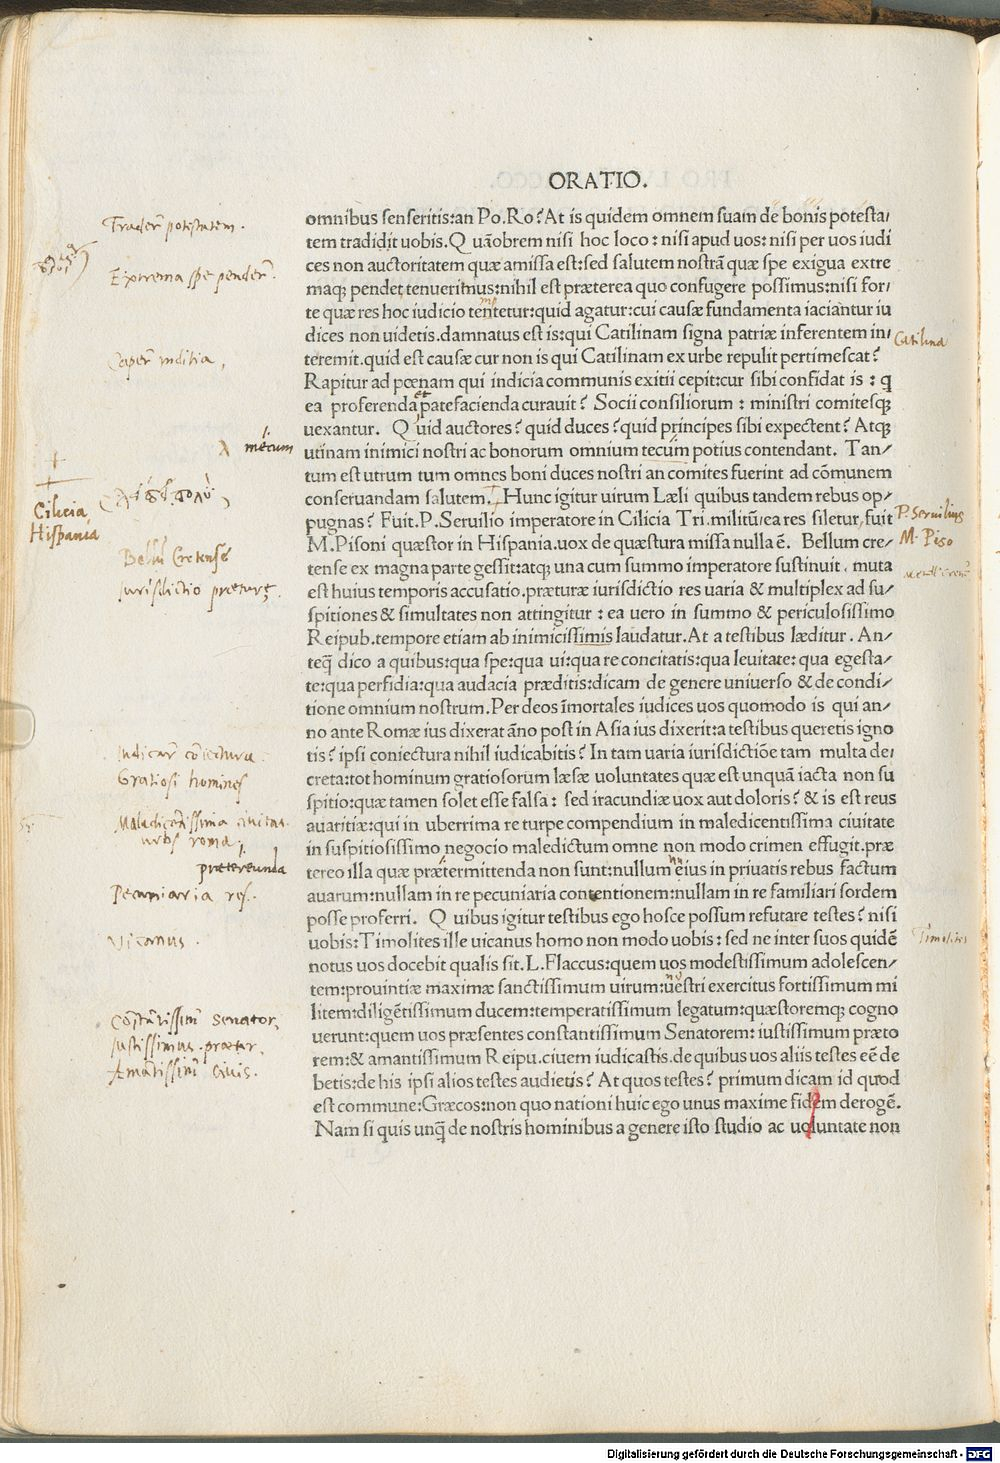 ORATIO.
omnibus senseritis:an Po.Ro? At is quidem omnem suam de bonis potesta/
tem tradidit uobis. Quãobrem nisi hoc loco: nisi apud uos: nisi per uos iudi
ces non auctoritatem quæ amissa est:sed salutem nostrã quæ spe exigua extre
maq; pendet tenuerimus:nihil est præterea quo confugere possimus:nisi for/
te quæ res hoc iudicio tentetur:quid agatur:cui causæ fundamenta iaciantur iu
dices non uidetis.damnatus est is:qui Catilinam signa patriæ inferentem in/
teremit.quid est causæ cur non is qui Catilinam ex urbe repulit pertimescat?
Rapitur ad pœnam qui indicia communis exitii cepit:cur sibi confidat is : q
ea proferenda et patefacienda curauit? Socii consiliorum : ministri comitesq;
uexantur. Quid auctores? quid duces? quid principes sibi expectent? Atq;
utinam inimici nostri ac bonorum omnium tecum potius contendant. Tan/
tum est utrum tum omnes boni duces nostri an comites fuerint ad cõmunem
conseruandam salutem. Hunc igitur uirum Læli quibus tandem rebus op/
pugnas? Fuit.P.Seruilio imperatore in Cilicia Tri.militũ:ea res siletur,fuit
M.Pisoni quæstor in Hispania.uox de quæstura missa nulla ẽ. Bellum cre/
tense ex magna parte gessit:atq; una cum summo imperatore sustinuit. muta
est huius temporis accusatio.præturæ iurisdictio res uaria & multiplex ad su/
spitiones & simultates non attingitur : ea uero in summo & periculosissimo
Reipub.tempore etiam ab inimicissimis laudatur.At a testibus læditur. An/
teq̃ dico a quibus:qua spe:qua ui:qua re concitatis:qua leuitate: qua egesta/
te:qua perfidia:qua audacia præditis:dicam de genere uniuerso & de condi/
tione omnium nostrum.Per deos ĩmortales iudices uos quomodo is qui an/
no ante Romæ ius dixerat ãno post in Asia ius dixerit:a testibus queretis igno
tis? ipsi coniectura nihil iudicabitis? In tam uaria iurisdictiõe tam multa de/
creta:tot hominum gratiosorum læsæ uoluntates quæ est unquã iacta non su
spitio:quæ tamen solet esse falsa: sed iracundiæ uox aut doloris? & is est reus
auaritiæ:qui in uberrima re turpe compendium in maledicentissima ciuitate
in suspitiosissimo negocio maledictum omne non modo crimen effugit.præ
tereo illa quæ prætermittenda non sunt:nullum eius in priuatis rebus factum
auarum:nullam in re pecuniaria contentionem:nullam in re familiari sordem
posse proferri. Quibus igitur testibus ego hosce possum refutare testes? nisi
uobis:Timolites ille uicanus homo non modo uobis: sed ne inter suos quidẽ
notus uos docebit qualis sit.L.Flaccus:quem uos modestissimum adolescen/
tem:prouintiæ maximæ sanctissimum uirum:uestri exercitus fortissimum mi
litem:diligẽtissimum ducem:temperatissimum legatum:quæstoremq; cogno
uerunt:quem uos præsentes constantissimum Senatorem: iustissimum præto
rem:& amantissimum Reipu.ciuem iudicastis.de quibus uos aliis testes eẽ de
betis:de his ipsi alios testes audietis? At quos testes? primum dicam id quod
est commune:Græcos:non quo nationi huic ego unus maxime fidem derogẽ.
Nam si quis unq̃ de nostris hominibus a genere isto studio ac uoluntate non
Trader̃ potestatem.
Extrema spe pender̃.
Caper̃ inditia,
mecum
Cilicia,
Hispania
Bellũ Cretensẽ
Jurisdictio præturę.
Iudicar̃ coniectura.
Gratiosi homines
Maledicẽtissima ciuitas.
urbs roma.
prætereunda
Pecuniaria res.
Vicanus.
Constãtissimũ Senator,
Justissimus prætor,
Amãtissimũ ciuis.
Catilina
P. Seruilius
M. Piso
Timolites
Digitalisierung gefördert durch die Deutsche Forschungsgemeinschaft - DFG